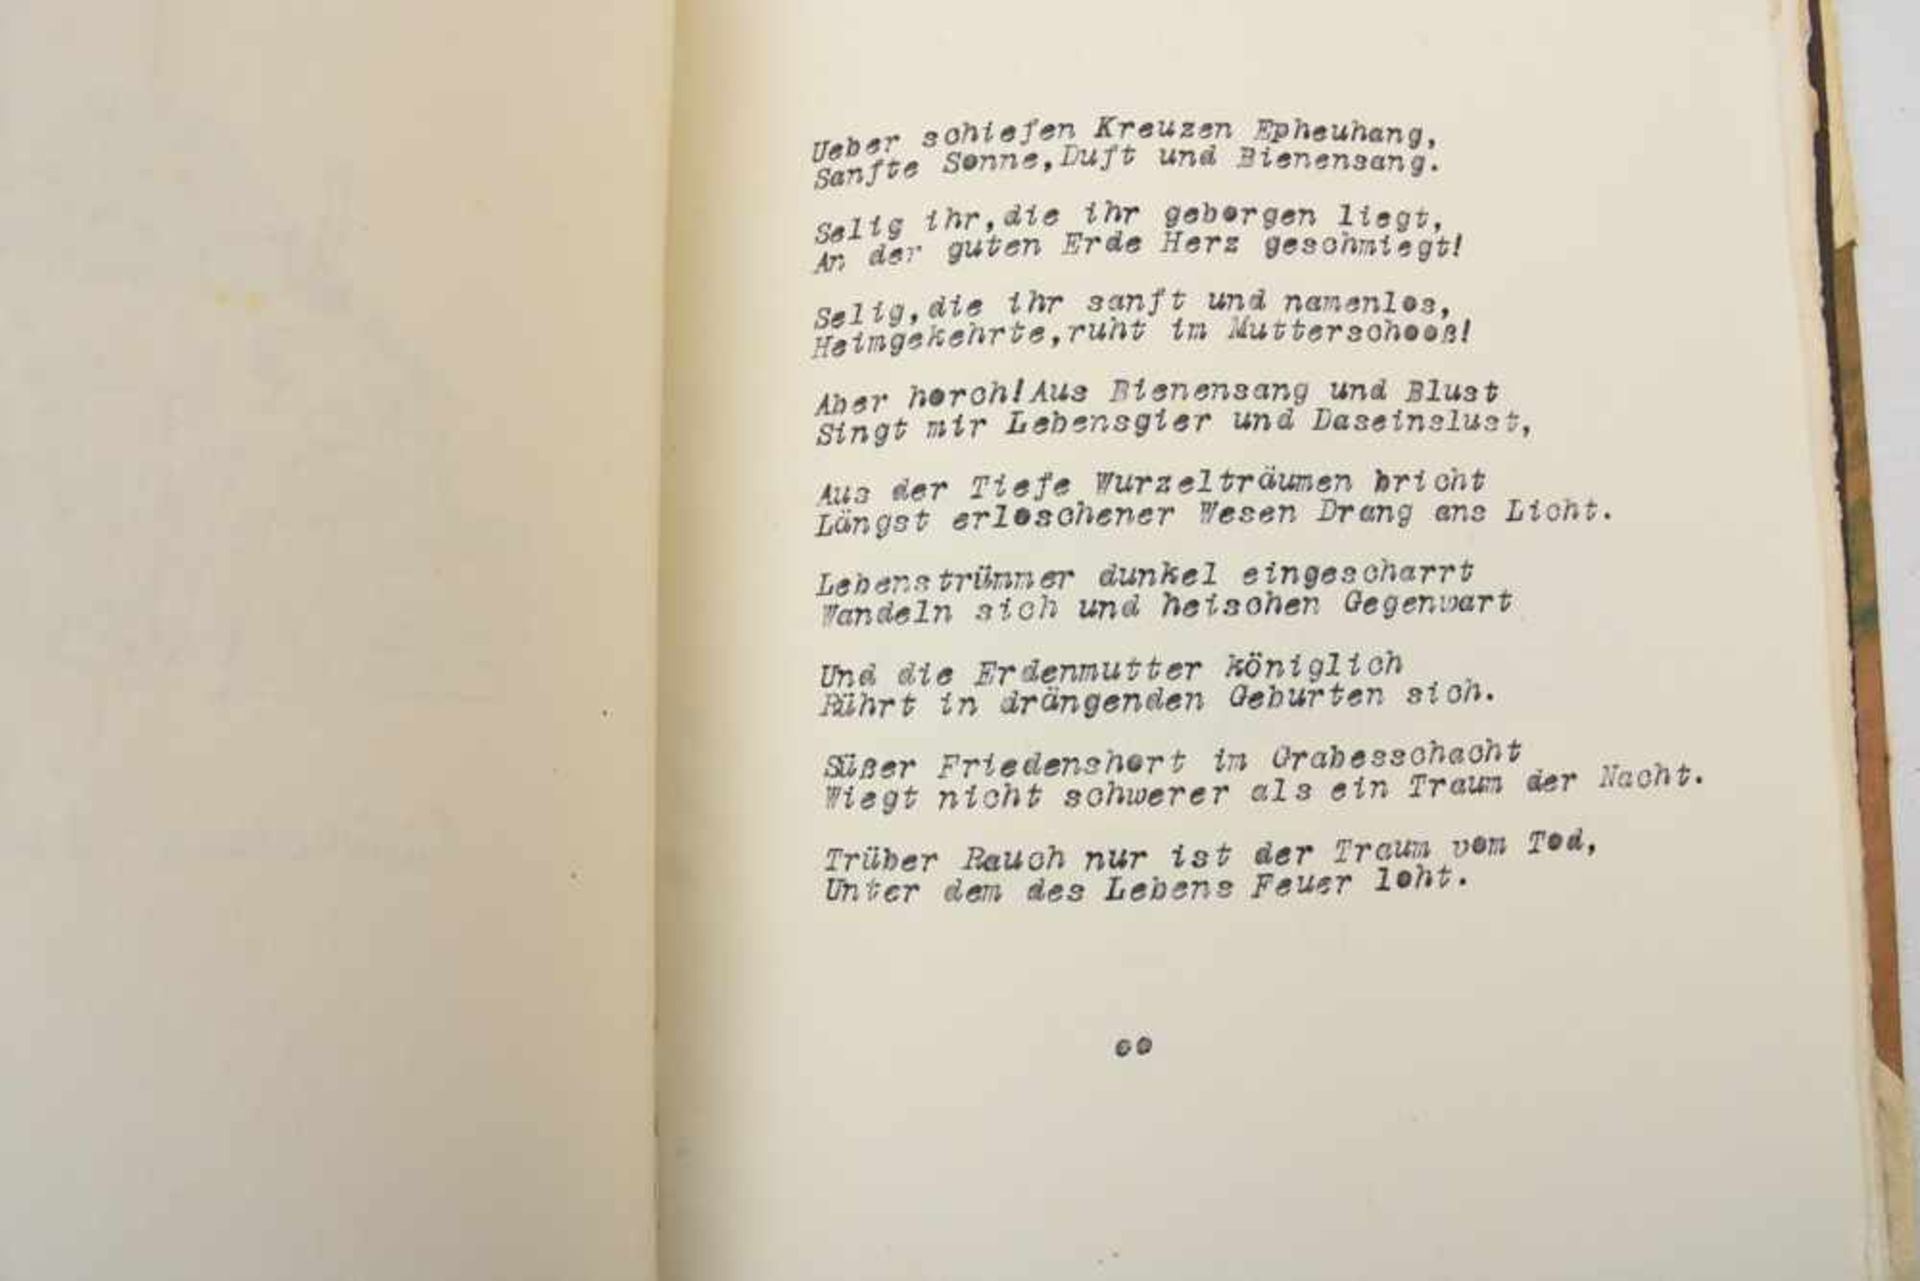 Ueber schiefen Kreuzen Epheuhang,
Sanfte Sonne,Duft und Bienensang.
Selig ihr,die ihr geborgen liegt,
An der guten Erde Herz geschmiegt!
Selig,die ihr sanft und namenlos,
Heimgekehrte,ruht im Mutterschooß!
Aber horch!Aus Bienensang und Blust
Singt mir Lebensgier und Daseinslust,
Aus der Tiefe Wurzelträumen bricht
Längst erloschener Wesen Drang ans Licht.
Lebenstrümmer dunkel eingescharrt
Wandeln sich und heischen Gegenwart
Und die Erdenmutter königlich
Rührt in drängenden Geburten sich.
Süßer Friedenshort im Grabesschacht
Wiegt nicht schwerer als ein Traum der Nacht.
Trüber Rauch nur ist der Traum vom Tod,
Unter dem des Lebens Feuer loht.